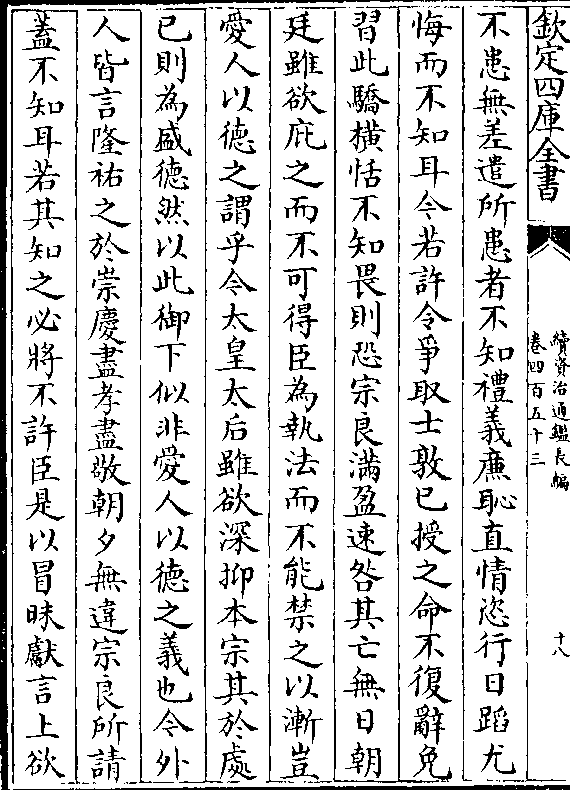 欽定四庫全書
續資治通鑑長編
卷四百五十三
十八
不患無差遣所患者不知禮義亷恥直情恣行日蹈尤
悔而不知耳令若許令爭取士敦已授之命不復辭免
習此驕橫恬不知畏則恐宗良滿盈速咎其亡無日朝
廷雖欲庇之而不可得臣為執法而不能禁之以漸豈
愛人以德之謂乎令太皇太后雖欲深抑本宗其於處
已則為盛德然以此御下似非愛人以德之義也令外
人皆言隆祐之於崇慶盡孝盡敬朝夕無違宗良所請
蓋不知耳若其知之必將不許臣是以冒昧獻言上欲